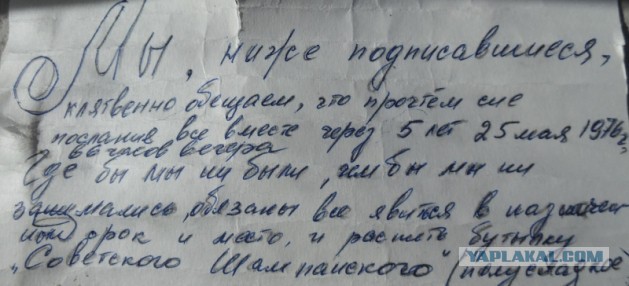 Мы, ниже подписавшиеся,
клятвенно обещаем, что прочтём сие
послания все вместе через 5 лет 25 мая 1976 г.
в 6 часов вечера
Где бы мы ни были, чем бы мы ни
занимались, обязаны все явиться в назначен
ный срок и место, и распить бутылку
"Советского Шампанского" (полусладкое
YAPLAKAL.COM